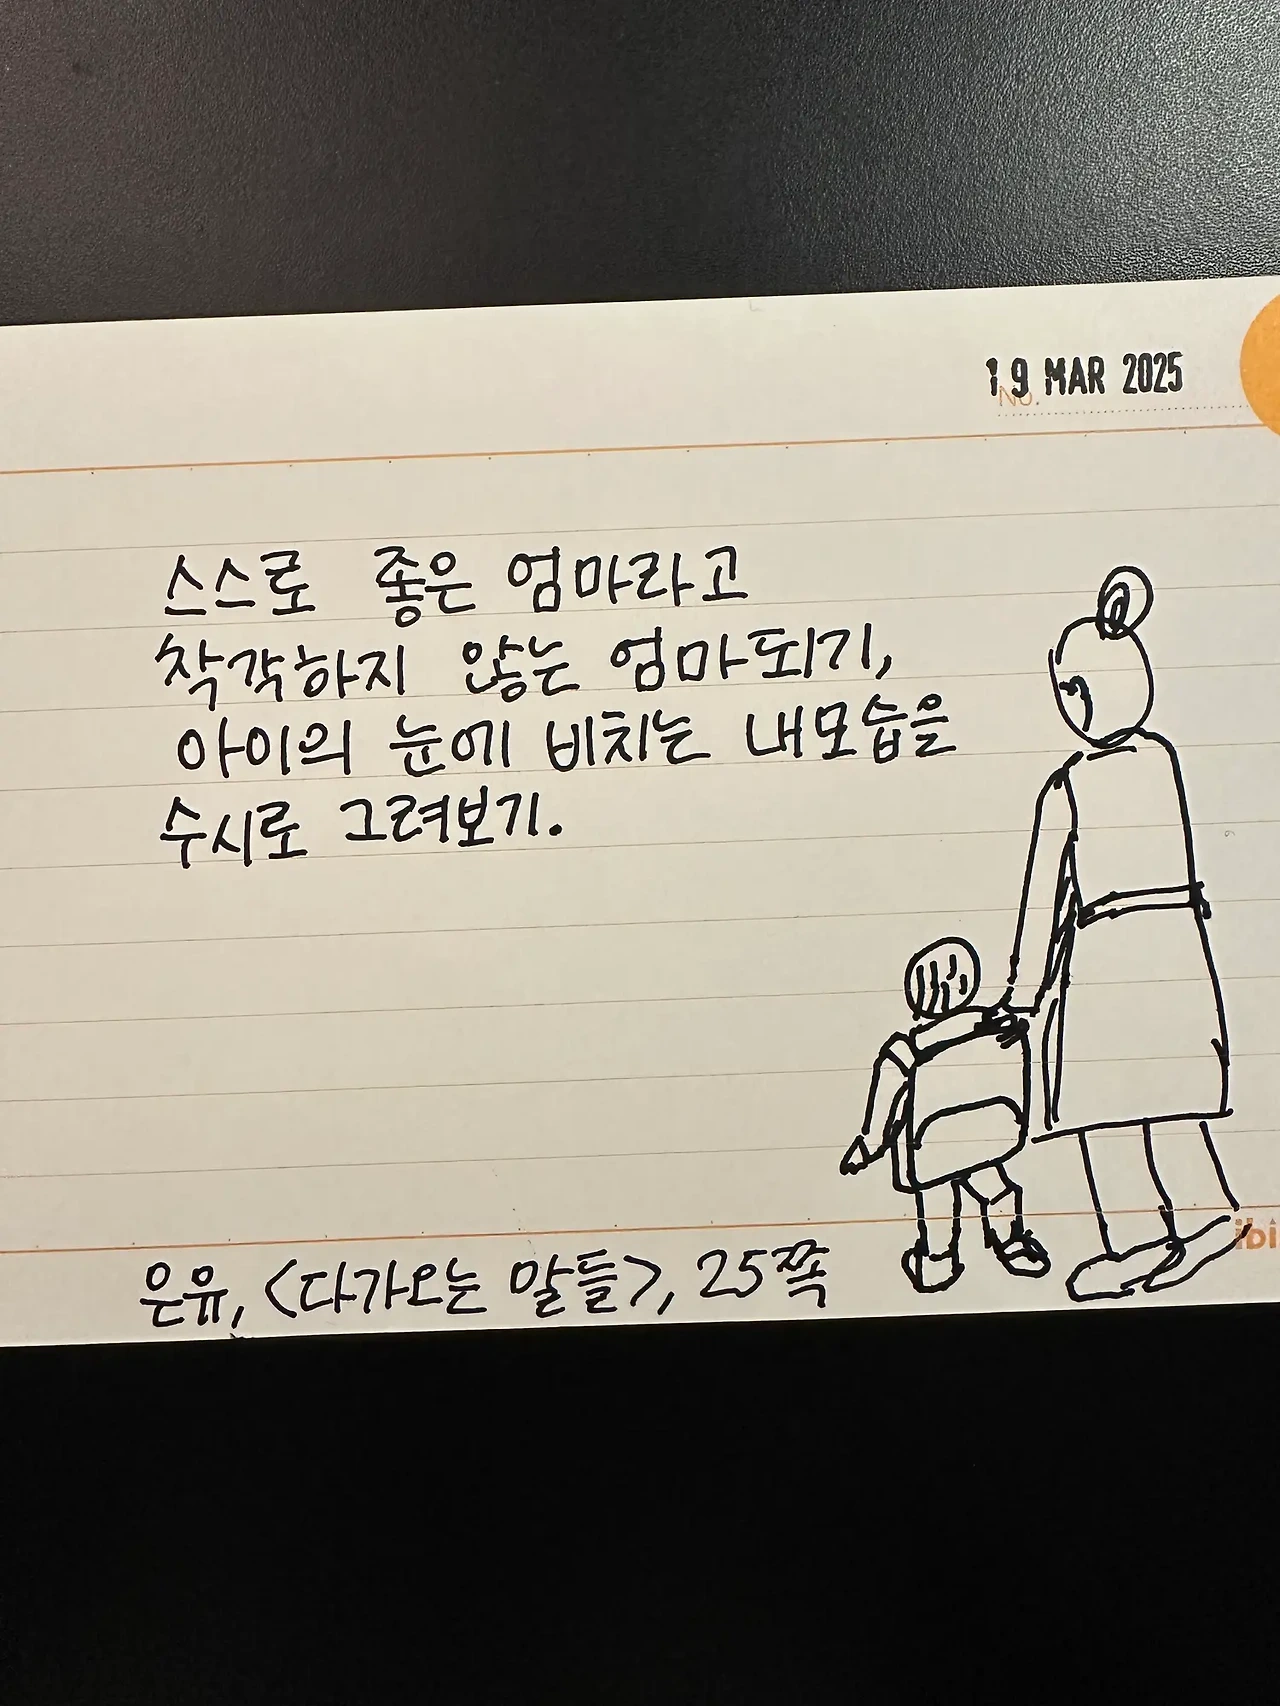 19 MAR 2025
No.
스스로 좋은 엄마라고
착각하지 않는 엄마되기,
아이의 눈에 비치는 내모습을
수시로 그려보기.
ibi
은유, <다가오는 말들>, 25쪽